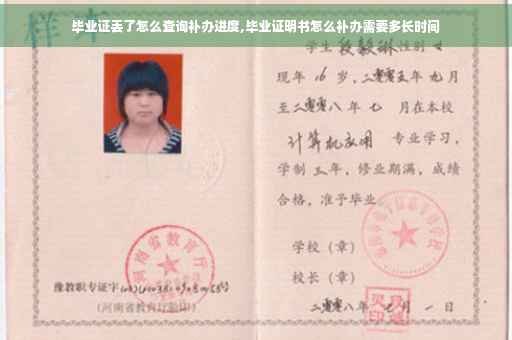 毕业证丢了怎么查询补办进度,毕业证明书怎么补办需要多长时间
样本
学生段毅琳性别女
现年16岁,二零零五年九月
至二零零八年七月在本校
计算机应用 专业学习,
学制三年,修业期满,成绩
合格,准予毕业
学校(章)
校长(章)
二零零八年 月一日
河南省教育厅
豫教职专证字
(河南省教育厅验印)